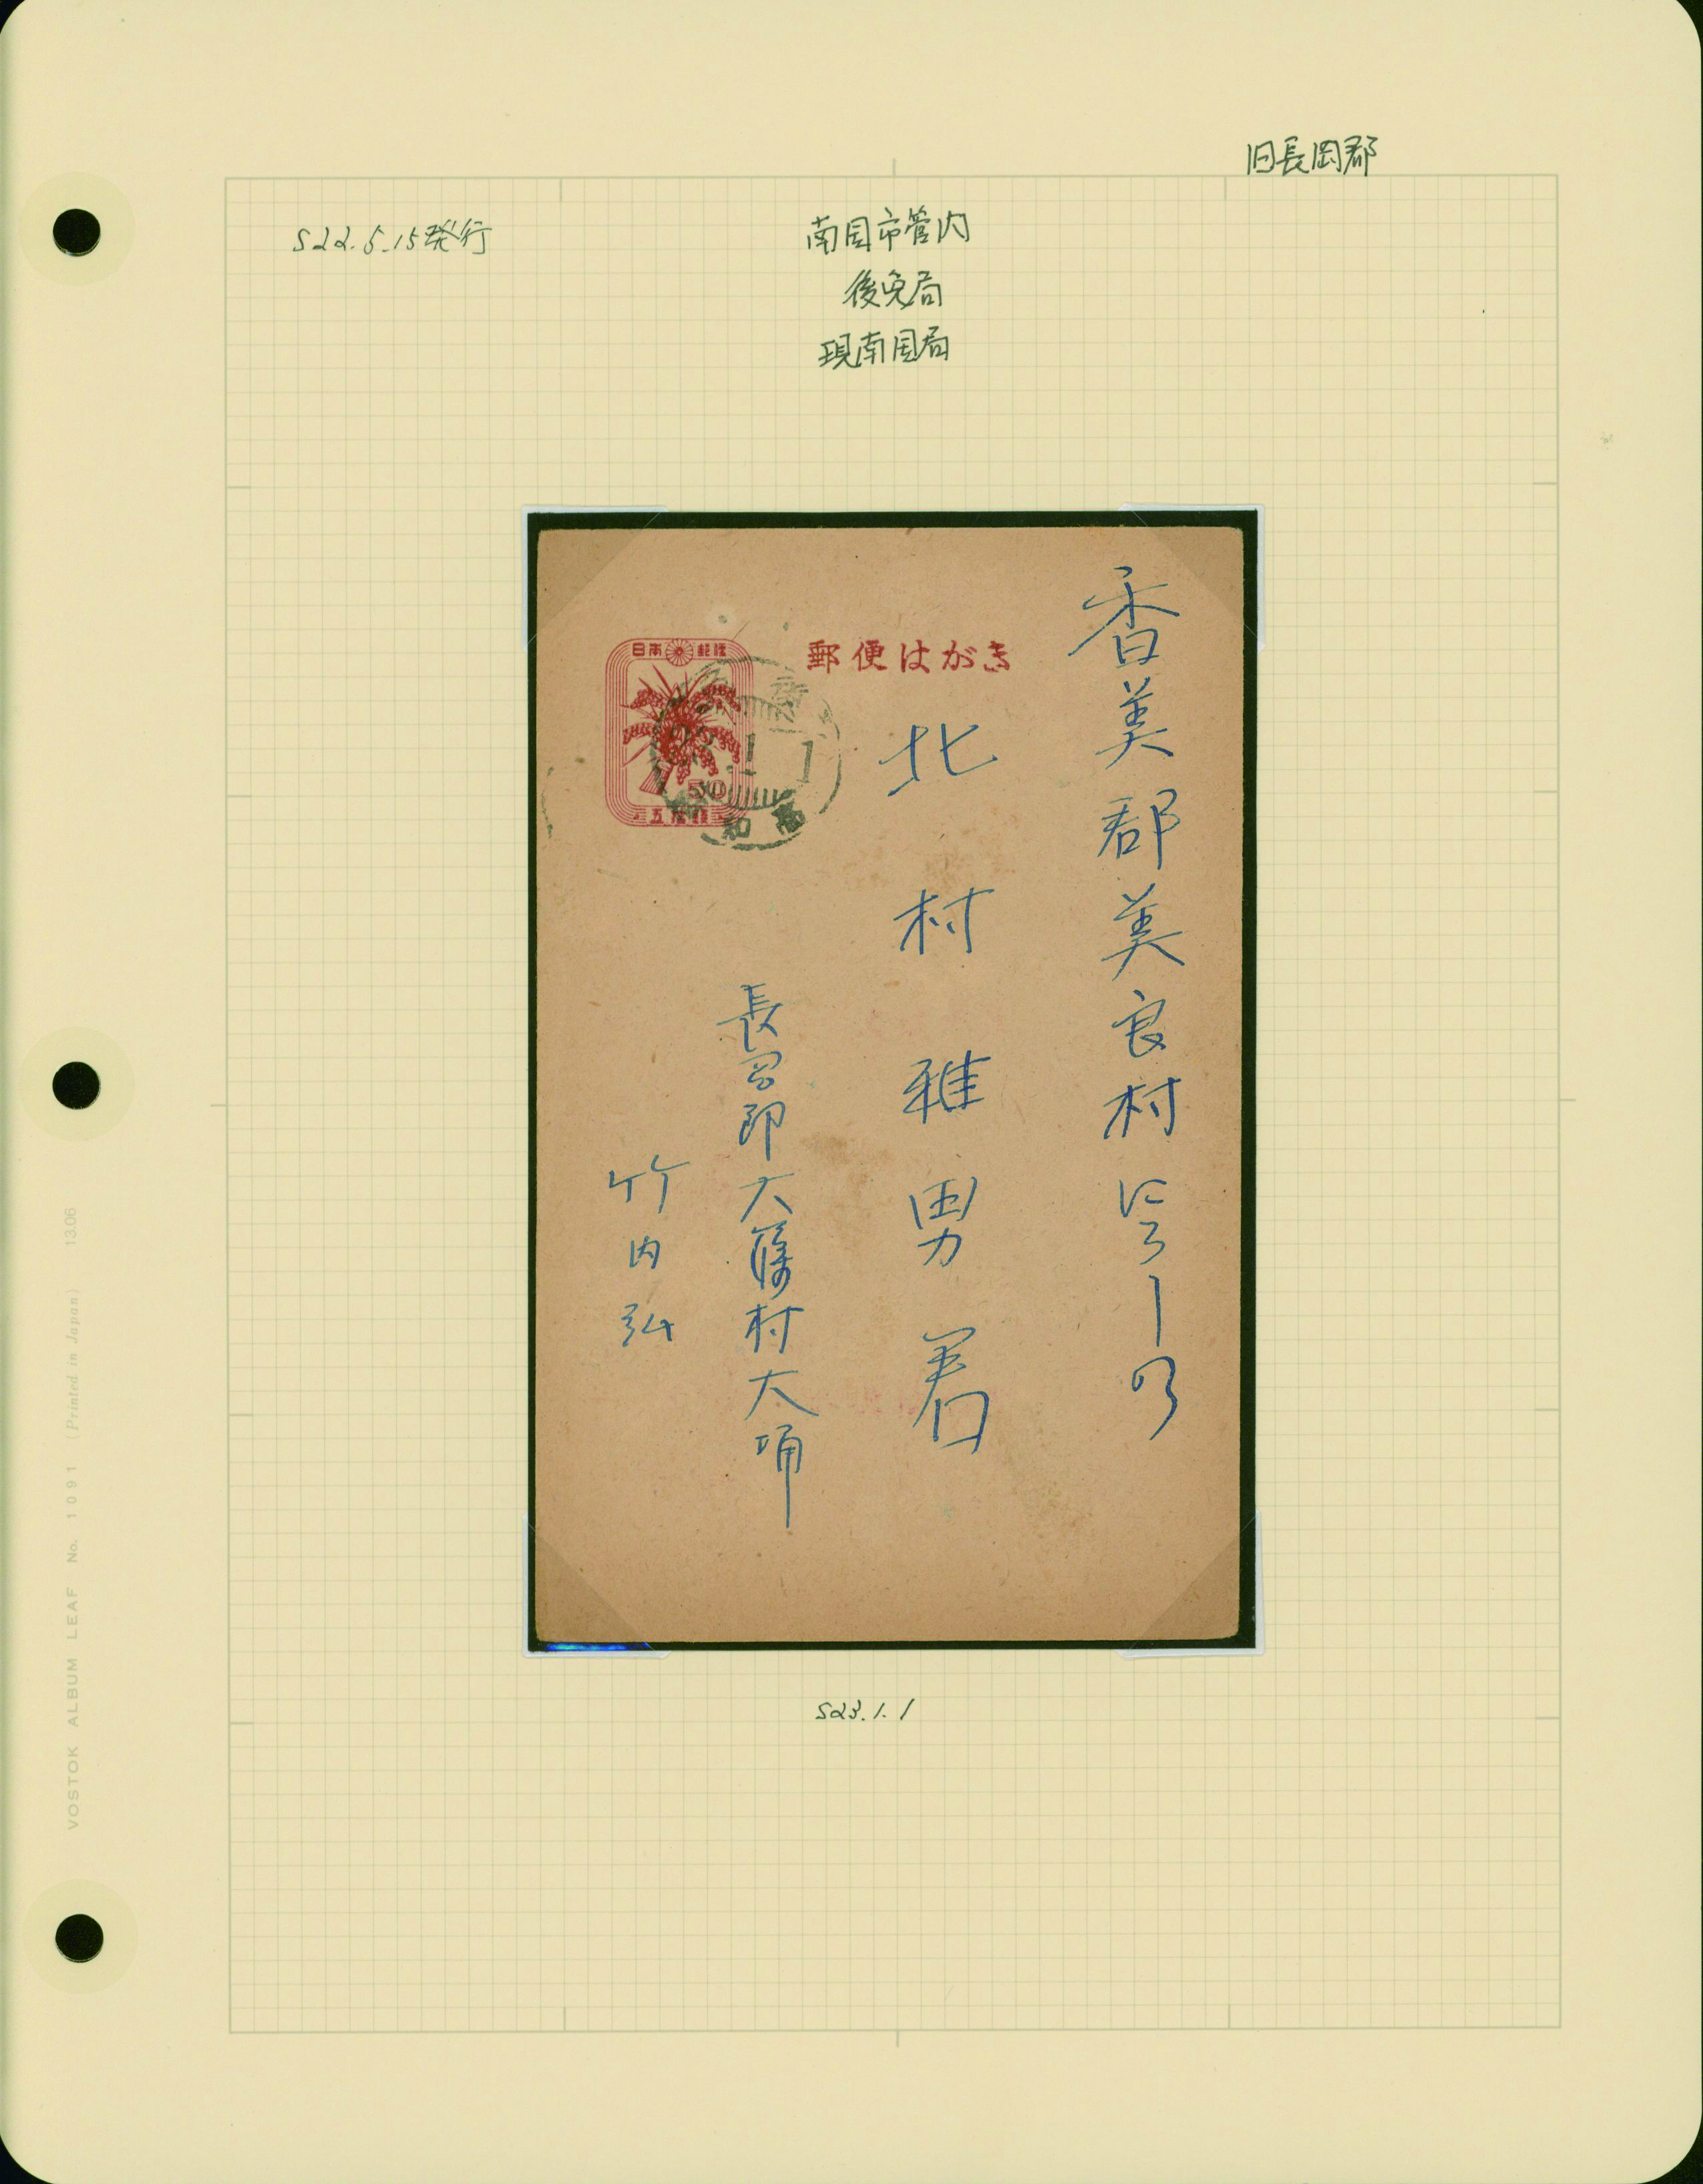 旧長岡郡
S22.5.15発行
南国市管内
後免局
現南国局
郵便はがき
日本郵便
50
五拾銭
1.1
高知
香美郡美良村
北村雅男君
長岡郎大篠村大埇
竹内弘
S23.1.1
VOSTOK ALBUM LEAF No. 1091 (Printed in Japan) 1306